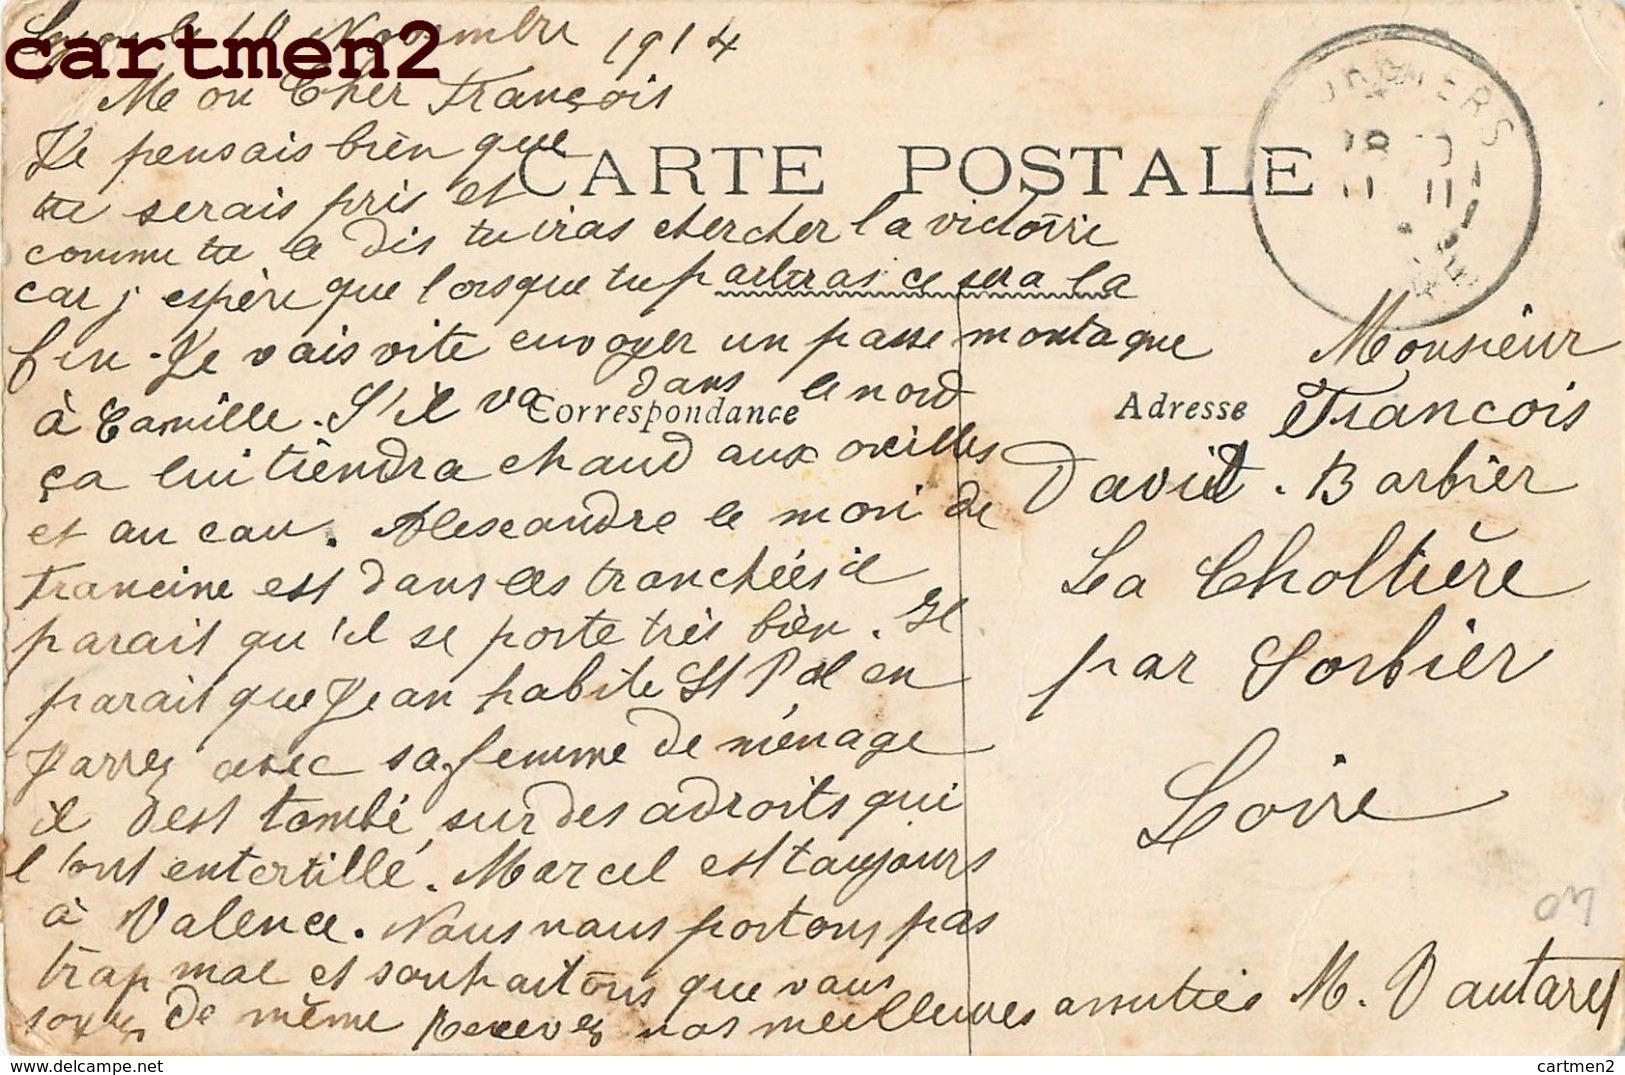 cartmen2
le 10 Novembre 1914
Mon Cher François
Je pensais bien que
tu serais pris et
CARTE POSTALE
comme tu a dis tu iras chercher la victoire
car j'espère que lorsque tu partiras ce sera la
fin. Je vais vite envoyer un passe montaque
à Camille. S'il va dans le nord
Correspondance
ça lui tiendra chaud aux oreilles
et au cau. Alexandre le mari de
Francine est dans les tranchées il
parait qu'il se porte très bien. Il
parait que Jean habite St Pal en
Jarrez avec sa femme de ménage
il dest tombé sur des adroits qui
l'ont entortillé. Marcel est toujours
à Valence. Nous nous portons pas
trop mal et souhaitons que vous
soyez de même Recevez nos meilleures amitiés M. Vautaret
Monsieur
Adresse
François
David. Barbier
La Choltière
par Sorbier
Loire
cartmen2